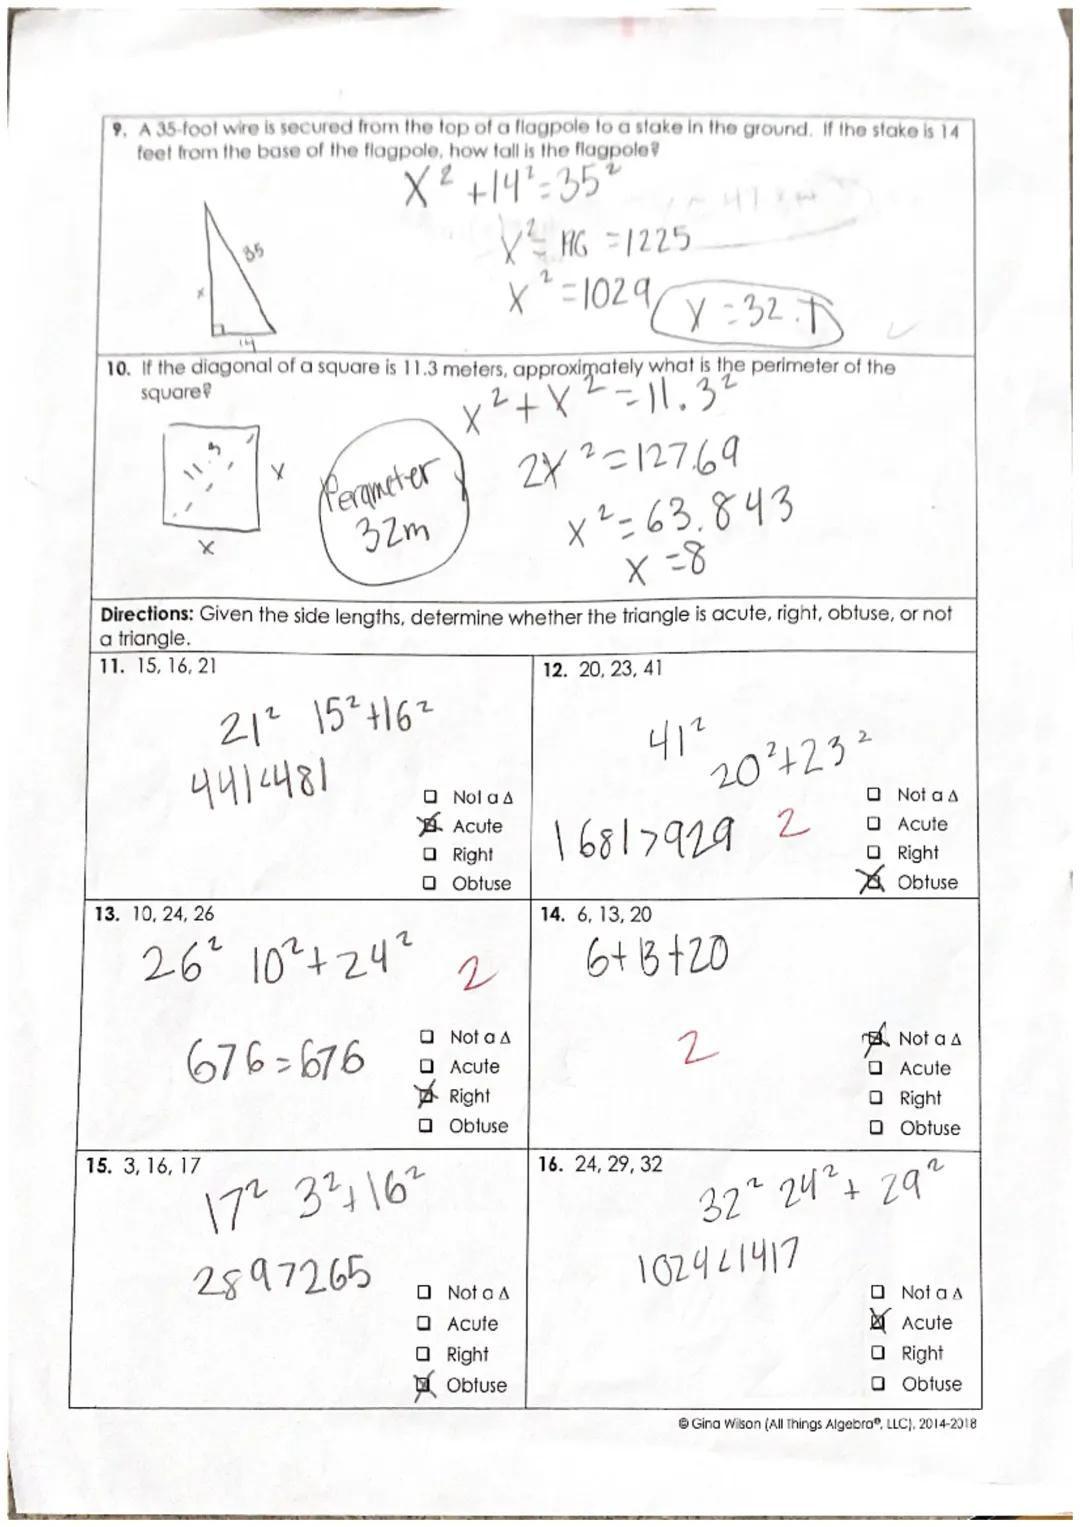 9. A 35-foot wire is secured from the top of a flagpole to a stake in the ground. If the stake is 14
feet from the base of the flagpole, how tall is the flagpole?
x² +14²=35²
x²= 196 =1225
x²=1029
x=32.1
35
x
14
10. If the diagonal of a square is 11.3 meters, approximately what is the perimeter of the
square?
x²+x²=11.3²
2x²=127.69
x²=63.843
x=8
11.3
x
x
Perameter
32m
Directions: Given the side lengths, determine whether the triangle is acute, right, obtuse, or not
a triangle.
11. 15, 16, 21
21² 15²+16²
441<481
Not a Δ
Acute
Right
Obtuse
12. 20, 23, 41
41²
20²+23²
1681>929 2
Not a Δ
Acute
Right
Obtuse
13. 10, 24, 26
26² 10²+24²
2
676=676
Not a Δ
Acute
Right
Obtuse
14. 6, 13, 20
6+13+20
2
Not a Δ
Acute
Right
Obtuse
15. 3, 16, 17
17² 3²+16²
289>265
Not a Δ
Acute
Right
Obtuse
16. 24, 29, 32
32² 24²+ 29²
1024<1417
Not a Δ
Acute
Right
Obtuse
© Gina Wilson (All Things Algebra®, LLC), 2014-2018